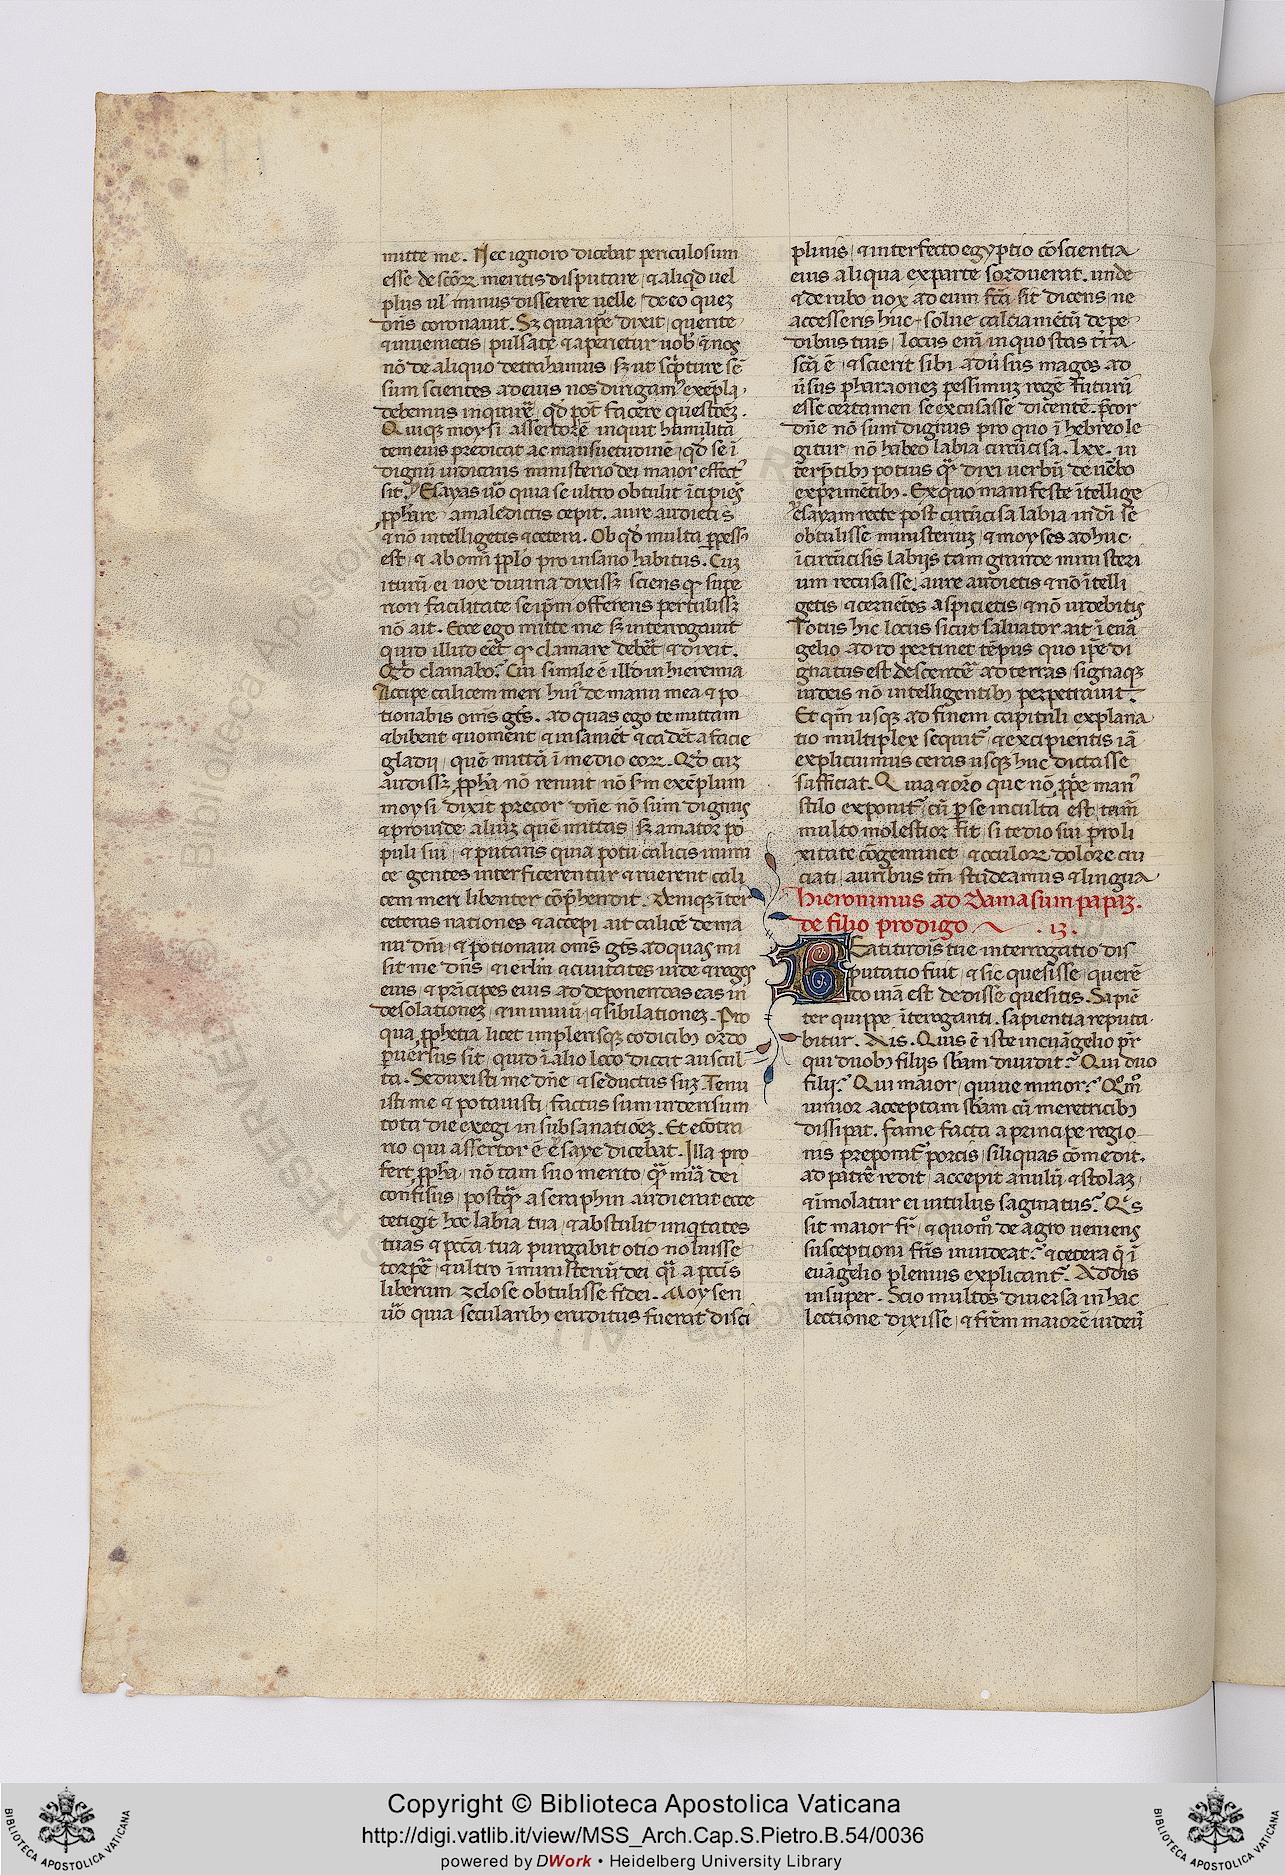 mitte me. Nec ignoro dicebat periculosum
esse de scõꝝ meritis disputare, ⁊ aliqd uel
plus ul' minus disserere uelle de eo quez
dñs coronauit. Sꝫ quia ipẽ dixit, querite
⁊ inuenietis, pulsate ⁊ aperietur uob', ⁊ nos
nõ de aliquo detrahamus, sꝫ ut scp̃ture sẽ
sum scientes ad eius nos dirigam' exẽpla,
debemus inquirẽ, qd põt facere questõez.
Quiqz moysi assertorẽ inquit humilitã
tem eius predicat ac mansuetudinẽ, qd se ĩ
dignũ iudicans ministerio dei maior effect'
sit. Esayas uõ quia se ultro obtulit ĩcipiẽs
ꝓphare a maledictis cepit. aure audietis
⁊ nõ intelligetis ⁊ cetera. Ob qd multa ꝑpess'
est, ⁊ ab omĩ ꝓplo pro insano habitus. Cuz
iturũ ei uox diuina dixissꝫ sciens qꝫ supe
non facilitate se ip̃m offerens pertulissꝫ
nõ ait. Ecce ego mitte me sꝫ interrogauit
quid illud eẽt qꝫ clamare debẽt ⁊ dixit.
Qd clamabo? Cui simile ẽ illd in hieremia
Accipe calicem meri hui' de manu mea ⁊ po
tionabis omẽs gẽtes. ad quas ego te mittam
⁊ bibent ⁊ uoment ⁊ insaniẽt ⁊ cadẽt a facie
gladij, quẽ mittã ĩ medio eoꝝ. Qd cuz
audissꝫ ꝓpha nõ renuit nõ sm exẽplum
moysi dixit precor dñe nõ sum dignus
⁊ prouide alium quẽ mittas, sꝫ amator po
puli sui, ⁊ putans quia potu calicis inimi
ce gentes interficerentur ⁊ ruerent cali
cem meri libenter cõp̃hendit. Deniqz ĩter
ceteras nationes ⁊ accepi ait calicẽ de ma
nu dñi, ⁊ potionaui omẽs gẽtes ad quas mi
sit me dñs, ⁊ ierlm ⁊ ciuitates iude ⁊ reges
eius, ⁊ p̃ncipes eius ad deponendas eas in
desolationez, ⁊ inuiũ, ⁊ sibilationez. Pro
qua ꝓphetia licet in plerisqz codicibꝫ ordo
ꝑuersus sit, quid ĩ alio loco dicat auscul
ta. Seduxisti me dñe ⁊ seductus suz. Tenu
isti me ⁊ potauisti, factus sum in derisum
tota die exegi in subsanatiõez. Et ecõtra
rio qui assertor ẽ esaye dicebat. Illa pro
fert ꝓpha, nõ tam suo merito, qꝫ mĩa dei
confisus, postqꝫ a seraphin audierat ecce
tetigit hoc labia tua, ⁊ abstulit iniqtates
tuas ⁊ pccã tua purgabit otio noluisse
torpẽ, ⁊ ultro ĩ ministeriũ dei qi a pccis
liberum zelose obtulisse fidei. Moysen
uõ quia secularibꝫ eruditus fuerat disci
plinis, ⁊ interfecto egyptio cõscientia
eius aliqua ex parte sorduerat. unde
⁊ de rubo uox ad eum fcã sit dicens ne
accesseris huc, solue calciamẽtũ de pe
dibus tuis, locus eni in quo stas trã
scã ẽ, ⁊ scierit sibi aduersus magos ad
ũsus pharaonez pessimuz regẽ futurũ
esse certamen se excusasse dicentẽ. p̃cor
dñe nõ sum dignus pro quo ĩ hebreo le
gitur, nõ habeo labia circũcisa. lxx. in
terp̃tibꝫ potius qꝫ dixi uerbũ de uẽbo
exprimẽtibꝫ. Ex quo manifeste ĩtellige
esayam recte post circũcisa labia in dñi se
obtulisse ministeriuz, ⁊ moyses adhuc
ĩcircũcisis labijs tam grande ministeri
um recusasse. aure audietis ⁊ nõ ĩtelli
getis, ⁊ cernẽtes aspicietis ⁊ nõ uidebitis
Totus hic locus sicut saluator ait ĩ euã
gelio ad id pertinet tẽpus quo ipẽ di
gnatus est descendẽ ad terras signaqz
iudeis nõ intelligentibꝫ perpetrauit.
Et qm usqz ad finem capituli explana
tio multiplex sequit', ⁊ excipientis iã
explicuimus ceras usqz huc dictasse
sufficiat. Quia ⁊ orõ que nõ ꝓpe man'
stilo exponit', cũ ꝑ se inculta est, tam
multo molestior fit, si tedio sui proli
xitate cõgeminet, ⁊ oculoꝝ dolore cru
ciati, auribus tm studeamus ⁊ lingua
Hieronimus ad Damasum papaz.
de filio prodigo .13.
Beatitudis tue interrogatio dis
putatio fuit, ⁊ sic quesisse, querẽ
do uiã est dedisse quesitis. Sapiẽ
ter quippe ĩteroganti. sapientia reputa
bitur. Ais. Quis ẽ iste in euãgelio pr̃
qui duobꝫ filijs sbam diuidit? Qui duo
filij? Qui maior, quiue minor? Qmo
iunior acceptam sbam cũ meretricibꝫ
dissipat. fame facta a principe regio
nis preponit' porcis, siliquas comedit.
ad patrẽ redit, accepit anulũ ⁊ stolaz,
⁊ imolatur ei uitulus saginatus? Qs
sit maior fr̃, ⁊ quomõ de agro ueniens
susceptioni frĩs inuideat? ⁊ cetera q ĩ
euãgelio plenius explicant'. Addis
insuper. Scio multos diuersa in hac
lectione dixisse, ⁊ frẽm maiorẽ iudeũ
Copyright © Biblioteca Apostolica Vaticana
http://digi.vatlib.it/view/MSS_Arch.Cap.S.Pietro.B.54/0036
powered by DWork • Heidelberg University Library
BIBLIOTECA APOSTOLICA VATICANA
BIBLIOTECA APOSTOLICA VATICANA